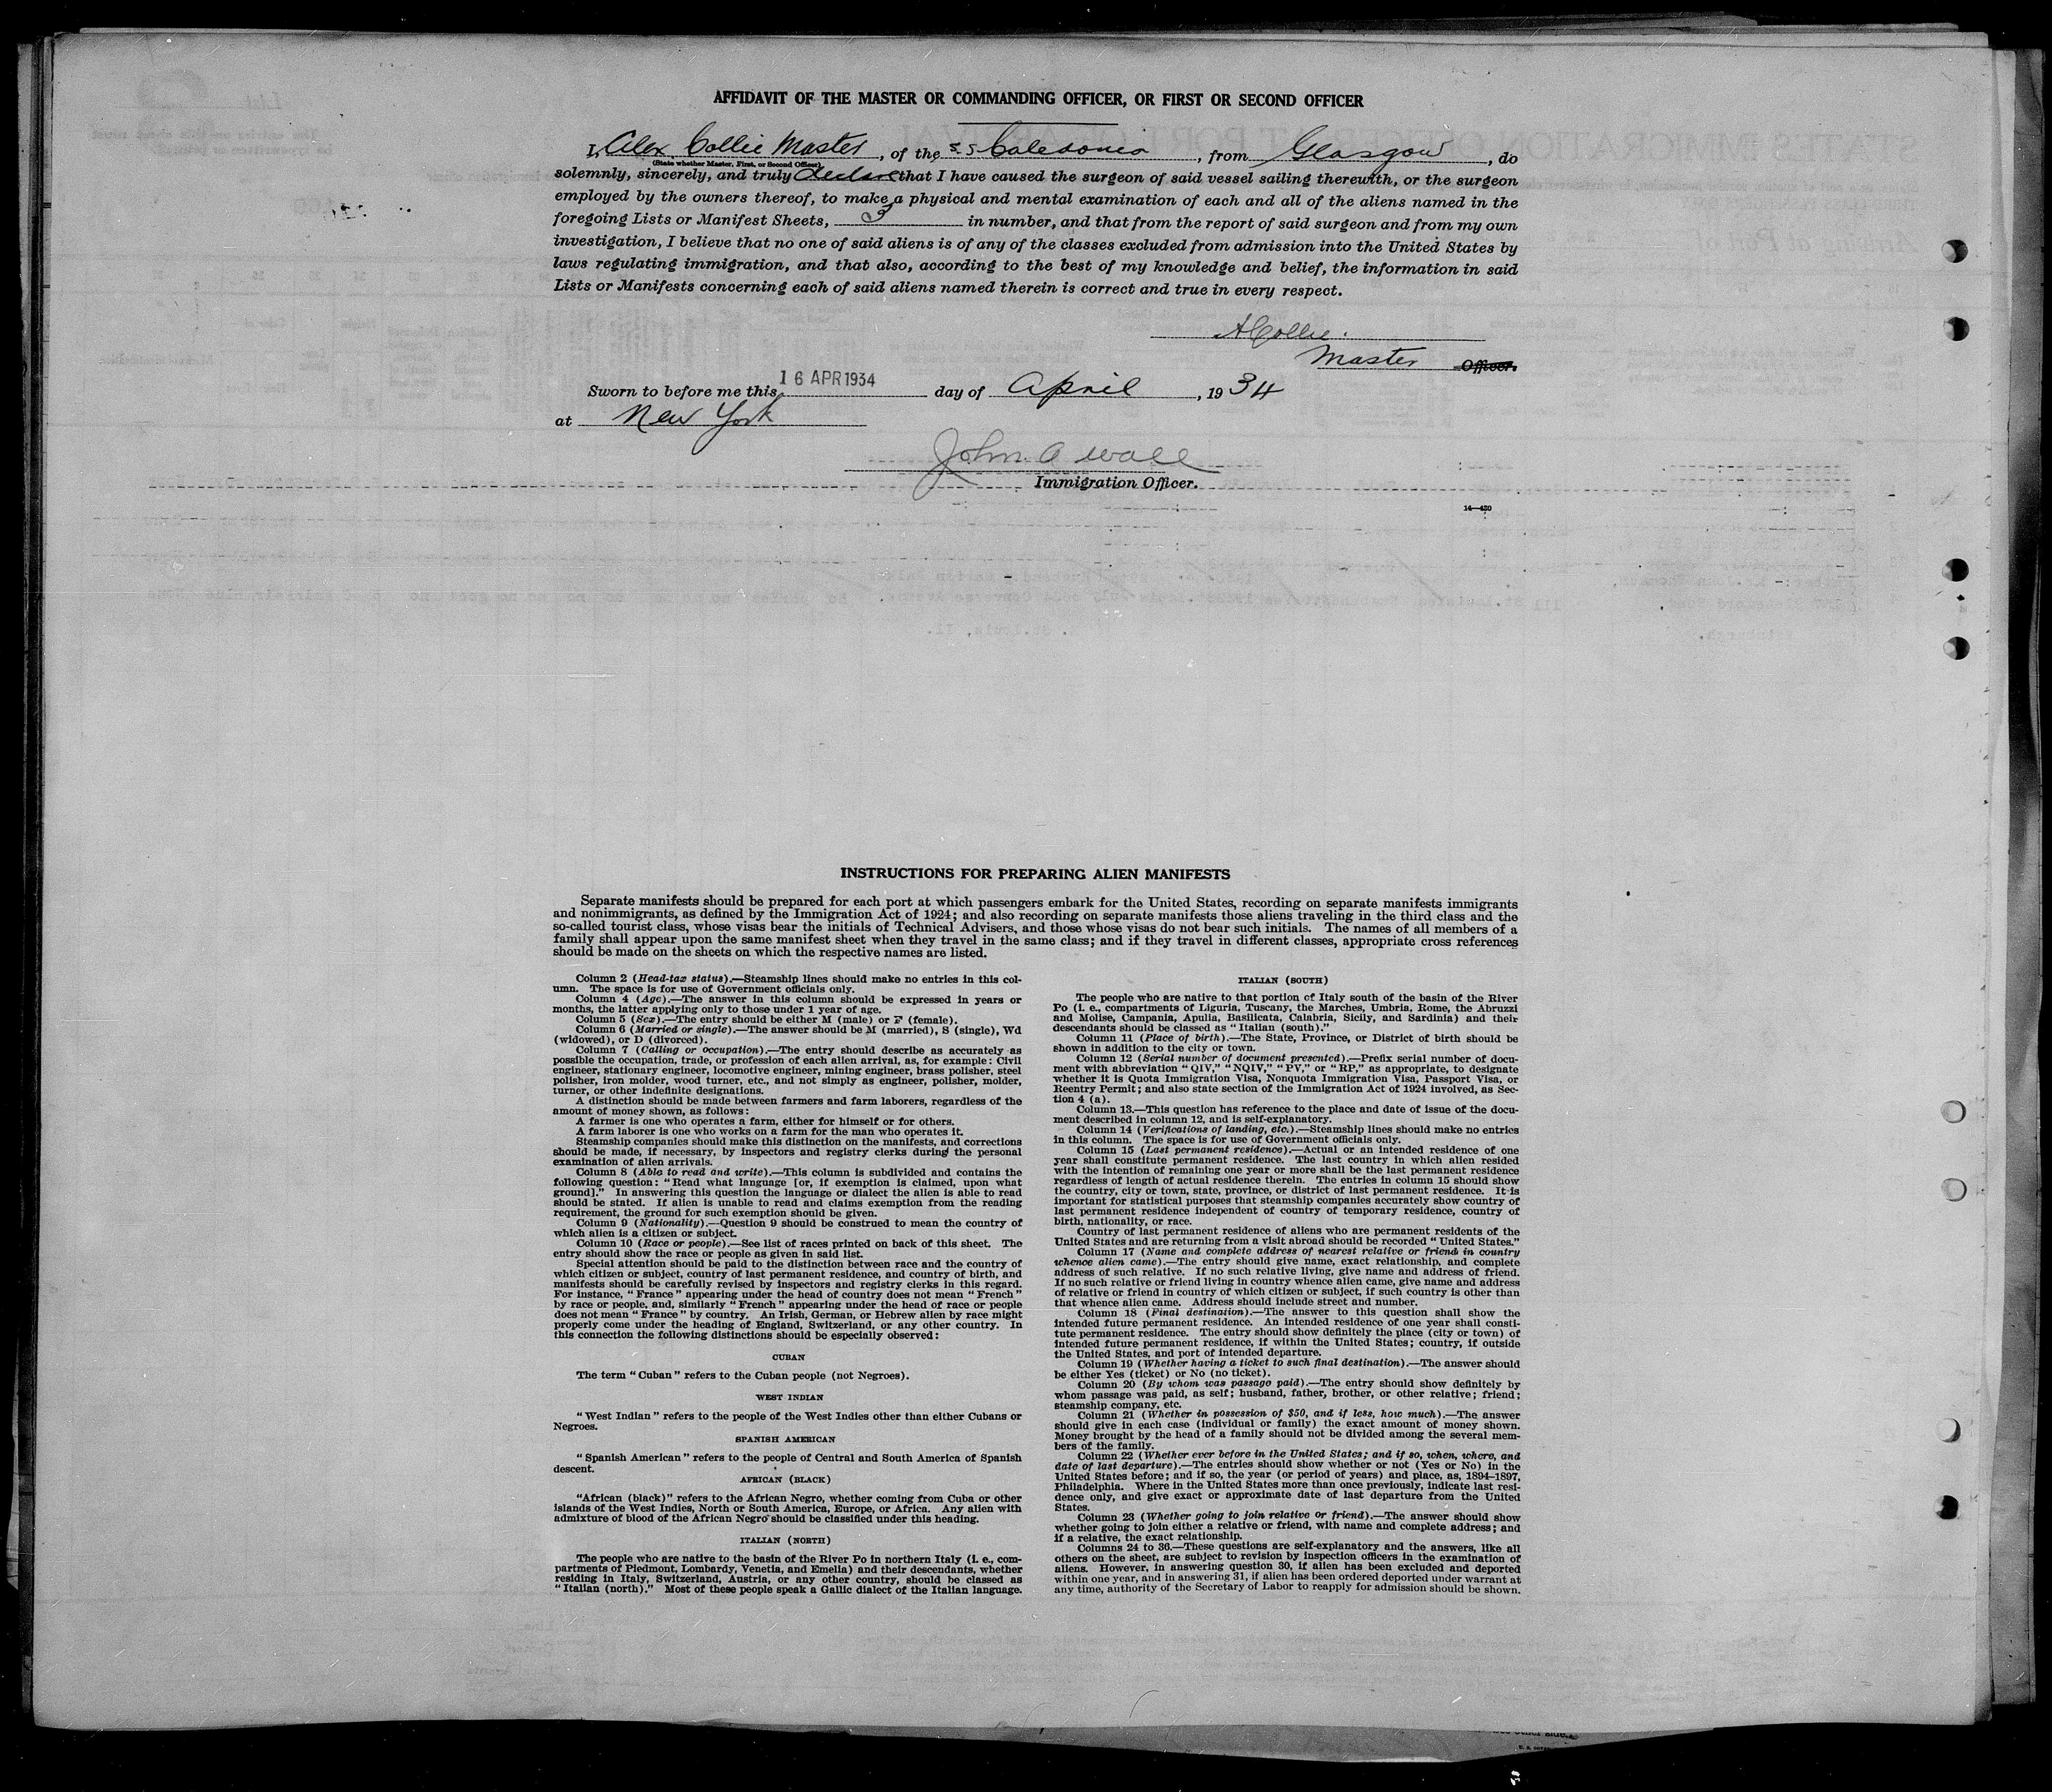 AFFIDAVIT OF THE MASTER OR COMMANDING OFFICER, OR FIRST OR SECOND OFFICER
I, Alex Collie Master, of the S.S Caledonia, from Glasgow, do
(State whether Master, First, or Second Officer)
solemnly, sincerely, and truly declare that I have caused the surgeon of said vessel sailing therewith, or the surgeon
employed by the owners thereof, to make a physical and mental examination of each and all of the aliens named in the
foregoing Lists or Manifest Sheets, 3 in number, and that from the report of said surgeon and from my own
investigation, I believe that no one of said aliens is of any of the classes excluded from admission into the United States by
laws regulating immigration, and that also, according to the best of my knowledge and belief, the information in said
Lists or Manifests concerning each of said aliens named therein is correct and true in every respect.
A Collie.
Master Officer.
Sworn to before me this 16 APR 1934 day of April, 1934
at New York
John A Wall
Immigration Officer.
14—430
INSTRUCTIONS FOR PREPARING ALIEN MANIFESTS
Separate manifests should be prepared for each port at which passengers embark for the United States, recording on separate manifests immigrants
and nonimmigrants, as defined by the Immigration Act of 1924; and also recording on separate manifests those aliens traveling in the third class and the
so-called tourist class, whose visas bear the initials of Technical Advisers, and those whose visas do not bear such initials. The names of all members of a
family shall appear upon the same manifest sheet when they travel in the same class; and if they travel in different classes, appropriate cross references
should be made on the sheets on which the respective names are listed.
Column 2 (Head-tax status).—Steamship lines should make no entries in this col-
umn. The space is for use of Government officials only.
Column 4 (Age).—The answer in this column should be expressed in years or
months, the latter applying only to those under 1 year of age.
Column 5 (Sex).—The entry should be either M (male) or F (female).
Column 6 (Married or single).—The answer should be M (married), S (single), Wd
(widowed), or D (divorced).
Column 7 (Calling or occupation).—The entry should describe as accurately as
possible the occupation, trade, or profession of each alien arrival, as, for example: Civil
engineer, stationary engineer, locomotive engineer, mining engineer, brass polisher, steel
polisher, iron molder, wood turner, etc., and not simply as engineer, polisher, molder,
turner, or other indefinite designations.
A distinction should be made between farmers and farm laborers, regardless of the
amount of money shown, as follows:
A farmer is one who operates a farm, either for himself or for others.
A farm laborer is one who works on a farm for the man who operates it.
Steamship companies should make this distinction on the manifests, and corrections
should be made, if necessary, by inspectors and registry clerks during the personal
examination of alien arrivals.
Column 8 (Able to read and write).—This column is subdivided and contains the
following question: "Read what language [or, if exemption is claimed, upon what
ground]." In answering this question the language or dialect the alien is able to read
should be stated. If alien is unable to read and claims exemption from the reading
requirement, the ground for such exemption should be given.
Column 9 (Nationality).—Question 9 should be construed to mean the country of
which alien is a citizen or subject.
Column 10 (Race or people).—See list of races printed on back of this sheet. The
entry should show the race or people as given in said list.
Special attention should be paid to the distinction between race and the country of
which citizen or subject, country of last permanent residence, and country of birth, and
manifests should be carefully revised by inspectors and registry clerks in this regard.
For instance, "France" appearing under the head of country does not mean "French"
by race or people, and, similarly "French" appearing under the head of race or people
does not mean "France" by country. An Irish, German, or Hebrew alien by race might
properly come under the heading of England, Switzerland, or any other country. In
this connection the following distinctions should be especially observed:
CUBAN
The term "Cuban" refers to the Cuban people (not Negroes).
WEST INDIAN
"West Indian" refers to the people of the West Indies other than either Cubans or
Negroes.
SPANISH AMERICAN
"Spanish American" refers to the people of Central and South America of Spanish
descent.
AFRICAN (BLACK)
"African (black)" refers to the African Negro, whether coming from Cuba or other
islands of the West Indies, North or South America, Europe, or Africa. Any alien with
admixture of blood of the African Negro should be classified under this heading.
ITALIAN (NORTH)
The people who are native to the basin of the River Po in northern Italy (i. e., com-
partments of Piedmont, Lombardy, Venetia, and Emelia) and their descendants, whether
residing in Italy, Switzerland, Austria, or any other country, should be classed as
"Italian (north)." Most of these people speak a Gallic dialect of the Italian language.
ITALIAN (SOUTH)
The people who are native to that portion of Italy south of the basin of the River
Po (i. e., compartments of Liguria, Tuscany, the Marches, Umbria, Rome, the Abruzzi
and Molise, Campania, Apulia, Basilicata, Calabria, Sicily, and Sardinia) and their
descendants should be classed as "Italian (south)."
Column 11 (Place of birth).—The State, Province, or District of birth should be
shown in addition to the city or town.
Column 12 (Serial number of document presented).—Prefix serial number of docu-
ment with abbreviation "QIV," "NQIV," "PV," or "RP," as appropriate, to designate
whether it is Quota Immigration Visa, Nonquota Immigration Visa, Passport Visa, or
Reentry Permit; and also state section of the Immigration Act of 1924 involved, as Sec-
tion 4 (a).
Column 13.—This question has reference to the place and date of issue of the docu-
ment described in column 12, and is self-explanatory.
Column 14 (Verifications of landing, etc.).—Steamship lines should make no entries
in this column. The space is for use of Government officials only.
Column 15 (Last permanent residence).—Actual or an intended residence of one
year shall constitute permanent residence. The last country in which alien resided
with the intention of remaining one year or more shall be the last permanent residence
regardless of length of actual residence therein. The entries in column 15 should show
the country, city or town, state, province, or district of last permanent residence. It is
important for statistical purposes that steamship companies accurately show country of
last permanent residence independent of country of temporary residence, country of
birth, nationality, or race.
Country of last permanent residence of aliens who are permanent residents of the
United States and are returning from a visit abroad should be recorded "United States."
Column 17 (Name and complete address of nearest relative or friend in country
whence alien came).—The entry should give name, exact relationship, and complete
address of such relative. If no such relative living, give name and address of friend.
If no such relative or friend living in country whence alien came, give name and address
of relative or friend in country of which citizen or subject, if such country is other than
that whence alien came. Address should include street and number.
Column 18 (Final destination).—The answer to this question shall show the
intended future permanent residence. An intended residence of one year shall consti-
tute permanent residence. The entry should show definitely the place (city or town) of
intended future permanent residence, if within the United States; country, if outside
the United States, and port of intended departure.
Column 19 (Whether having a ticket to such final destination).—The answer should
be either Yes (ticket) or No (no ticket).
Column 20 (By whom was passage paid).—The entry should show definitely by
whom passage was paid, as self; husband, father, brother, or other relative; friend;
steamship company, etc.
Column 21 (Whether in possession of $50, and if less, how much).—The answer
should give in each case (individual or family) the exact amount of money shown.
Money brought by the head of a family should not be divided among the several mem-
bers of the family.
Column 22 (Whether ever before in the United States; and if so, when, where, and
date of last departure).—The entries should show whether or not (Yes or No) in the
United States before; and if so, the year (or period of years) and place, as, 1894–1897,
Philadelphia. Where in the United States more than once previously, indicate last resi-
dence only, and give exact or approximate date of last departure from the United
States.
Column 23 (Whether going to join relative or friend).—The answer should show
whether going to join either a relative or friend, with name and complete address; and
if a relative, the exact relationship.
Columns 24 to 36.—These questions are self-explanatory and the answers, like all
others on the sheet, are subject to revision by inspection officers in the examination of
aliens. However, in answering question 30, if alien has been excluded and deported
within one year, and in answering 31, if alien has been ordered deported under warrant at
any time, authority of the Secretary of Labor to reapply for admission should be shown.